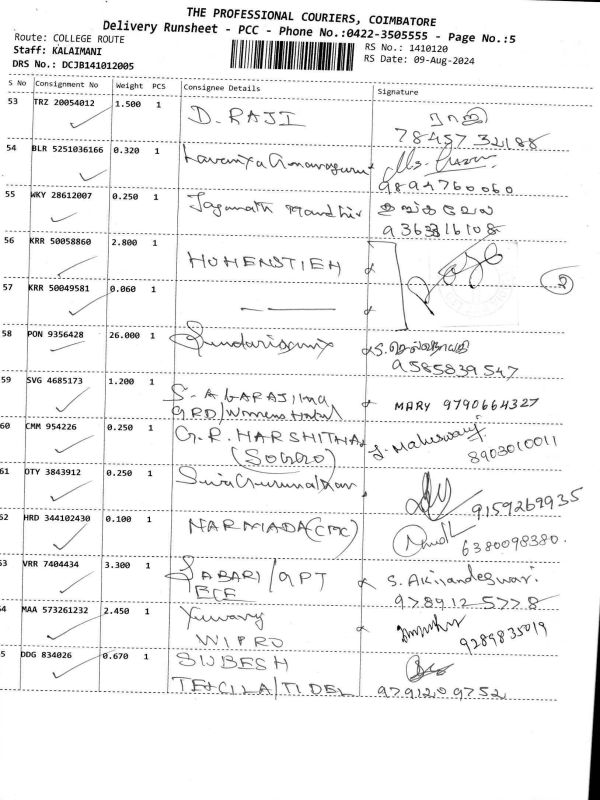 THE PROFESSIONAL COURIERS, COIMBATORE
Delivery Runsheet - PCC - Phone No.:0422-3505555 - Page No.:5
Route: COLLEGE ROUTE
Staff: KALAIMANI
DRS No.: DCJB141012005
RS No.: 1410120
RS Date: 09-Aug-2024
S No Consignment No Weight PCS Consignee Details Signature
53 TRZ 20054012 1.500 1 D. RAJI ராஜி
78457 32188
54 BLR 5251036166 0.320 1
9894760060
55 WKY 28612007 0.250 1 Jaganath
9363816108
56 KRR 50058860 2.800 1 HOHENSTIEH
2
57 KRR 50049581 0.060 1
58 PON 9356428 26.000 1
9585839547
59 SVG 4685173 1.200 1 MARY 9790664327
GRD/Womens Hostel
60 CMM 954226 0.250 1 G.R. HARSHITHA
8903010011
61 OTY 3843912 0.250 1
9159269935
62 HRD 344102430 0.100 1 NARMADA (CMC)
6380098380.
63 VRR 7404434 3.300 1 SABARI / GPT S. Akilandeswari.
ECE 97891 25778
64 MAA 573261232 2.450 1
WIPRO 9289835019
65 DDG 834026 0.670 1 SUBESH
TEXCILA/TIDEL 9791209752